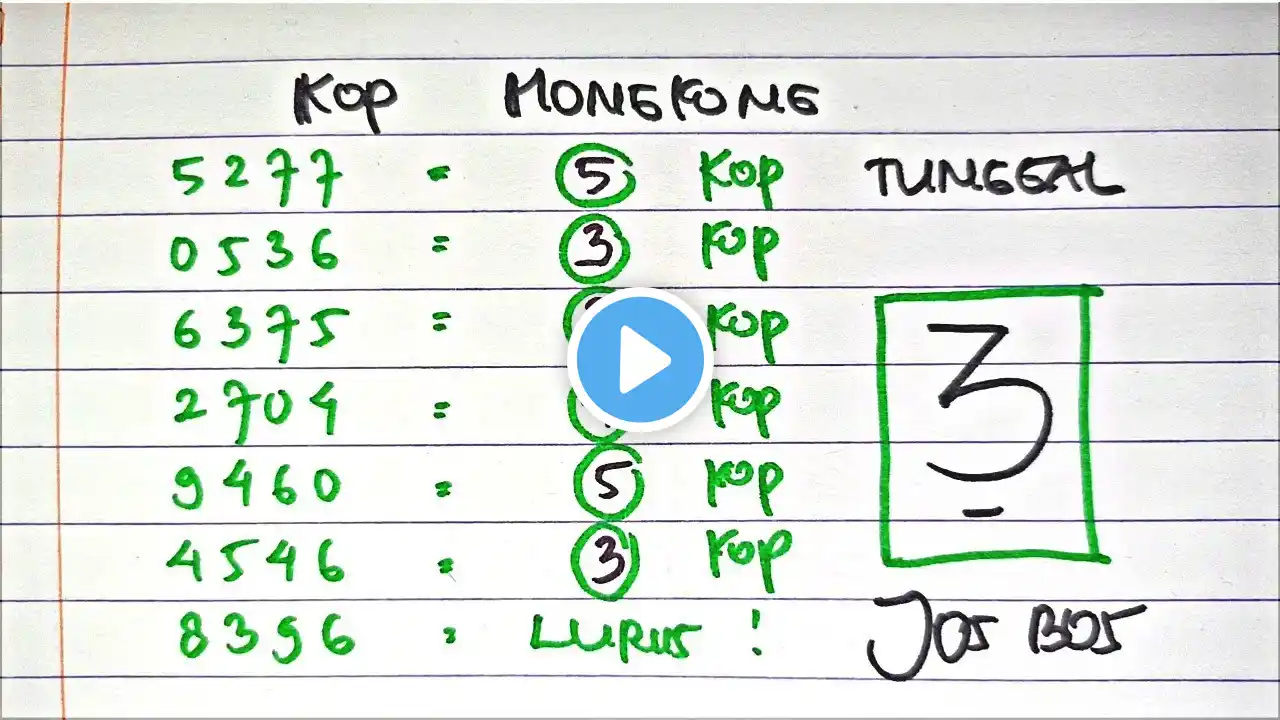 KOP HONGKONG
5277 = 5 KOP TUNGGAL
0536 = 3 KOP
6375 = KOP
2704 = KOP
9460 = 5 KOP
4546 = 3 KOP
8396 = LURUS !
3
JOS BOS